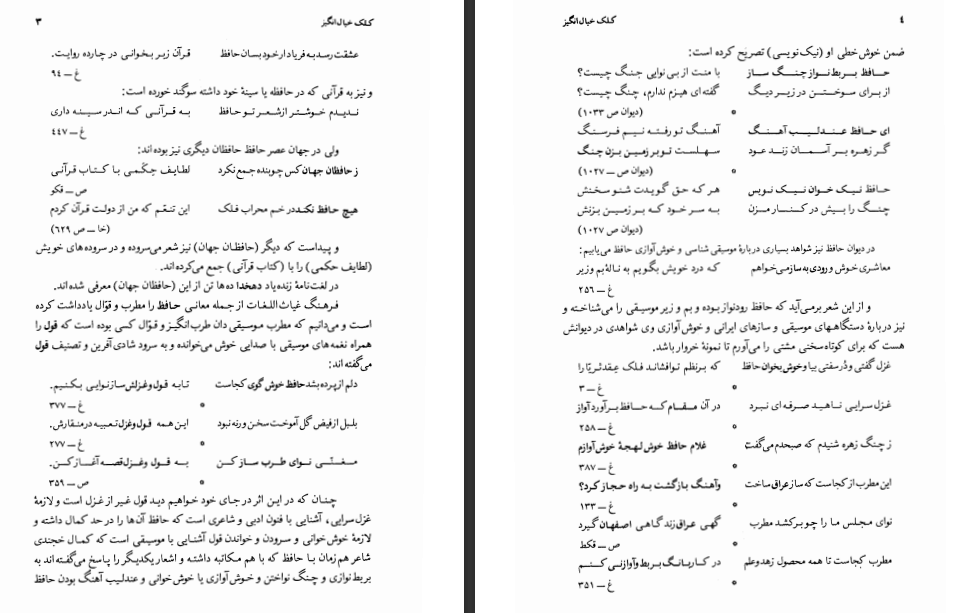 کلک خیال‌انگیز ۳
عشقت رسد به فریاد ار خود بسان حافظ قرآن ز بر بخوانی در چارده روایت.
غ ــ ۹٤
و نیز به قرآنی که در حافظه یا سینهٔ خود داشته سوگند خورده است:
ندیدم خوشتر از شعر تو حافظ به قرآنی که اندر سینه داری
غ ــ ٤٤۷
ولی در جهان عصر حافظ حافظان دیگری نیز بوده‌اند:
ز حافظان جهان کس چو بنده جمع نکرد لطایف حکمی با کتاب قرآنی
ص ــ قکو
هیچ حافظ نکند در خم محراب فلک این تنعّم که من از دولت قرآن کردم
(خا ــ ص ٦۲۹)
و پیداست که دیگر (حافظان جهان) نیز شعر می‌سروده و در سروده‌های خویش
(لطایف حکمی) را با (کتاب قرآنی) جمع می‌کرده‌اند.
در لغت‌نامهٔ زنده‌یاد دهخدا ده‌ها تن از این (حافظان جهان) معرفی شده‌اند.
فرهنگ غیاث‌اللغات از جمله معانی حافظ را مطرب و قوّال یادداشت کرده
است و می‌دانیم که مطرب موسیقی دان طرب‌انگیز و قوّال کسی بوده است که قول را
همراه نغمه‌های موسیقی با صدایی خوش می‌خوانده و به سرود شادی‌آفرین و تصنیف قول
می‌گفته‌اند:
دلم از پرده بشد حافظ خوش گوی کجاست تا به قول و غزلش ساز نوایی بکنیم.
غ ــ ۳۷۷
*
بلبل از فیض گل آموخت سخن ورنه نبود این همه قول و غزل تعبیه در منقارش.
غ ــ ۲۷۷
*
مغنّی نوای طرب ساز کن به قول و غزل قصه آغاز کن.
ص ــ ۳۵۹
*
چنان که در این اثر در جای خود خواهیم دید قول غیر از غزل است و لازمهٔ
غزل‌سرایی، آشنایی با فنون ادبی و شاعری است که حافظ آن‌ها را در حد کمال داشته و
لازمهٔ خوش‌خوانی و سرودن و خواندن قول آشنایی با موسیقی است که کمال خجندی
شاعر هم‌زمان با حافظ که با هم مکاتبه داشته و اشعار یکدیگر را پاسخ می‌گفته‌اند به
بربط‌نوازی و چنگ نواختن و خوش‌آوازی یا خوش‌خوانی و عندلیب آهنگ بودن حافظ
کلک خیال‌انگیز ٤
ضمن خوش‌خطی او (نیک‌نویسی) تصریح کرده است:
حافظ بربط نواز جنگ ساز با منت از بی‌نوایی جنگ چیست؟
از برای سوختن در زیر دیگ گفته‌ای هیزم ندارم، چنگ چیست؟
(دیوان ص ۱۰۳۳)
*
ای حافظ عندلیب آهنگ آهنگ تو رفته نیم فرسنگ
گر زهره بر آسمان زند عود سهلست تو بر زمین بزن چنگ
(دیوان ص ــ ۱۰۲۷)
*
حافظ نیک خوان نیک نویس هر که حق گویدت شنو سخنش
چنگ را بیش در کنار مزن به سر خود که بر زمین بزنش
(دیوان ص ۱۰۲۷)
در دیوان حافظ نیز شواهد بسیاری دربارهٔ موسیقی شناسی و خوش‌آوازی حافظ می‌یابیم:
معاشری خوش و رودی به ساز می‌خواهم که درد خویش بگویم به نالهٔ بم و زیر
غ ــ ۲۵٦
و از این شعر برمی‌آید که حافظ رودنواز بوده و بم و زیر موسیقی را می‌شناخته و
نیز دربارهٔ دستگاههای موسیقی و سازهای ایرانی و خوش‌آوازی وی شواهدی در دیوانش
هست که برای کوتاه‌سخنی مشتی را می‌آورم تا نمونهٔ خروار باشد.
غزل گفتی و دُر سفتی بیا و خوش بخوان حافظ که بر نظم تو افشاند فلک عِقد ثریّا را
غ ــ ۳
*
غزل سرایی ناهید صرفه‌ای نبرد در آن مقام که حافظ برآورد آواز
غ ــ ۲۵۸
*
ز چنگ زهره شنیدم که صبحدم می‌گفت غلام حافظ خوش لهجهٔ خوش آوازم
غ ــ ۳۸۷
*
این مطرب از کجاست که ساز عراق ساخت وآهنگ بازگشت به راه حجاز کرد؟
غ ــ ۱۳۳
*
نوای مجلس ما را چو برکشد مطرب گهی عراق زند گاهی اصفهان گیرد
ص ــ قکط
*
مطرب کجاست تا همه محصول زهد و علم در کار بانگ بربط و آواز نی کنم
غ ــ ۳۵۱
*